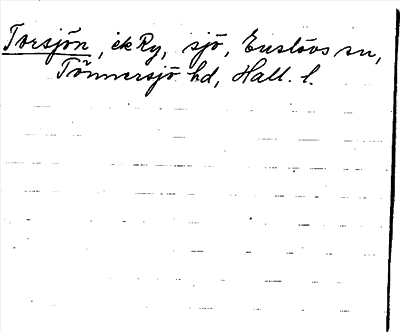 Torsjön, ek Ry, sjö, Enslövs sn,
Tönnersjö hd, Hall. l.